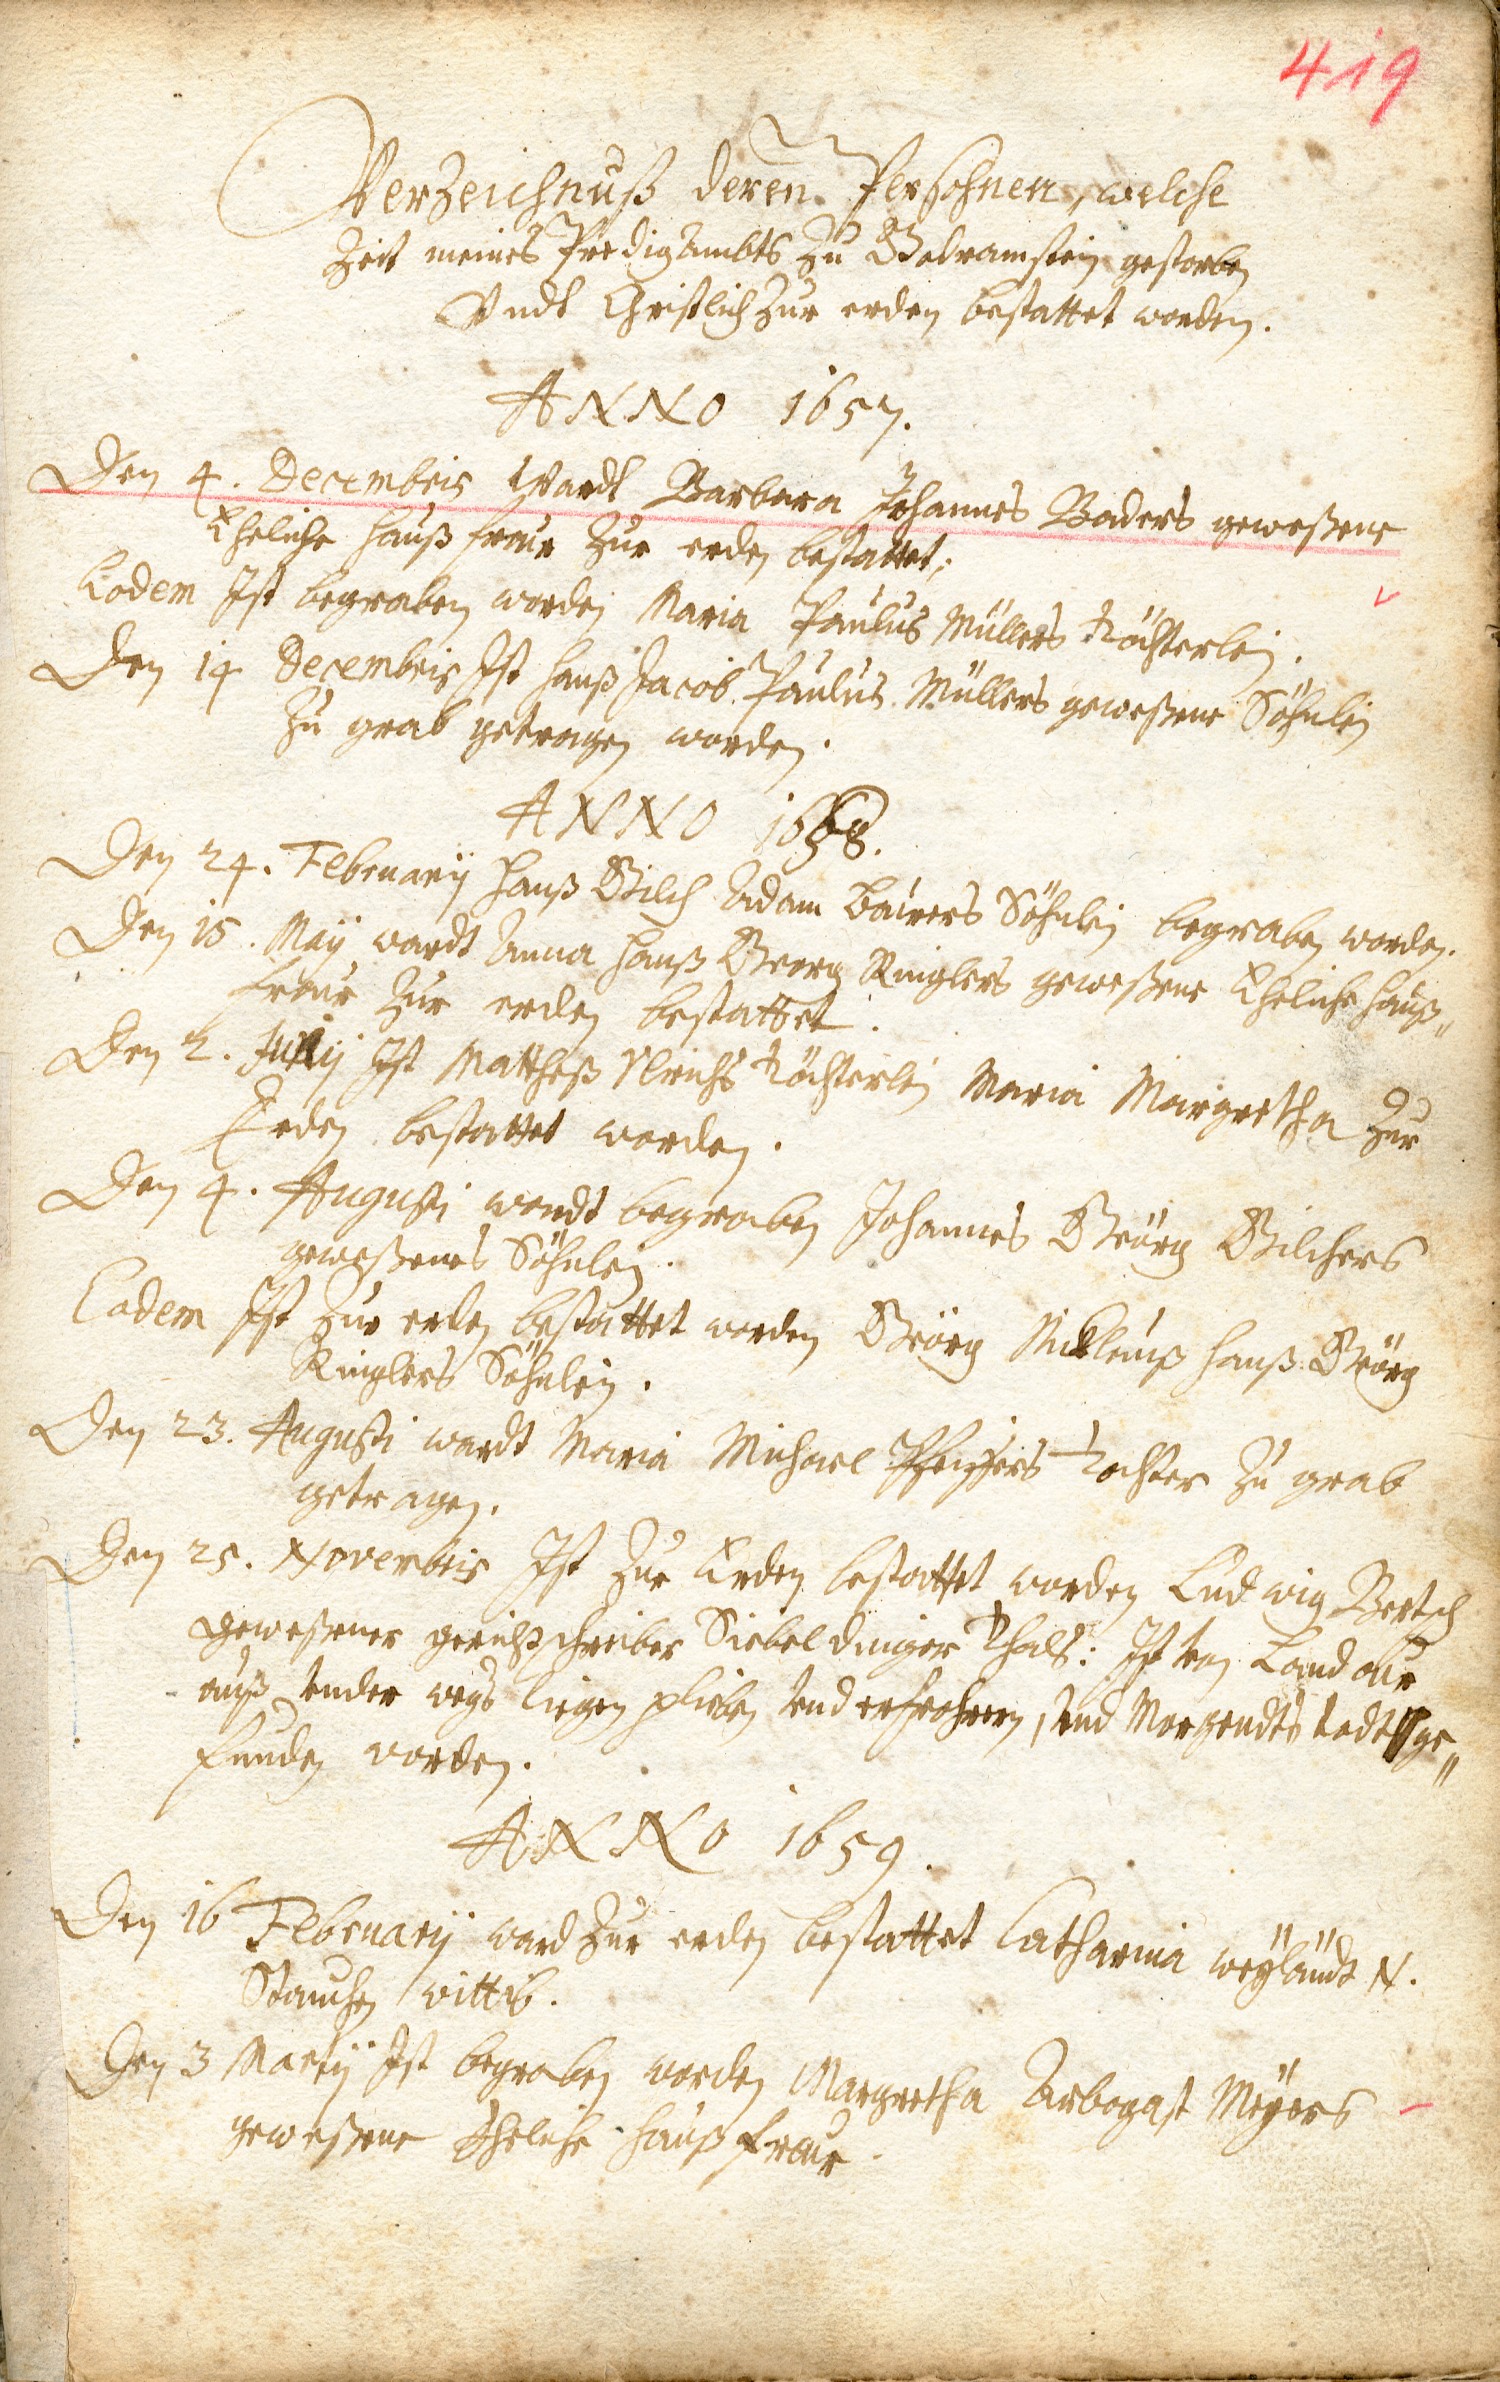 419
Verzeichnuß deren Persohnen, welche
Zeit meines Predigambts zu Godramstein gestorben
Undt Christlich zur erden bestattet worden.
ANNO 1657.
Den 4. Decembris Wardt Barbara Johannes Baders geweßene
Eheliche Haußfrauw zur erden bestattet;
Eodem Ist begraben worden Maria Paulus Müllers töchterlein.
Den 14 Decembris Ist Hanß Jacob Paulus Müllers geweßene Söhnlein
zu grab getragen worden.
ANNO 1658.
Den 24. February Hanß Adam Söhnlein begraben worden.
Den 15. Maij wardt Anna Hanß Georg Ringlers geweßene Eheliche Hauß„
frauw zur erden bestattet.
Den 2. Ist Mattheß Ulrichs töchterlein Maria Margretha zur
Erden bestattet worden.
Den 4. Augusti wardt begraben Johannes Geörg Gilchers
geweßenes Söhnlein.
Eodem Ist zur erden bestattet worden Geörg Nicklauß Hanß Geörg
Ringlers Söhnlein.
Den 23. Augusti wardt Maria Michael Pfeiffers tochter zu grab
getragen.
Den 25. Novembris Ist zur Erden bestattet worden Ludwig Bertsch
geweßener gerichtschreiber Siebeldinger Thals: Ist von Landauw
auß under wegs liegen plieben und erfrohren, und Morgendts todt ge„
funden worden.
ANNO 1659.
Den 16 February ward zur erden bestattet Catharina weÿländt N.
Stauchen wittib.
Den 3 Martij Ist begraben worden Margretha Arbogast Meÿers
geweßene Eheliche Haußfrauw.